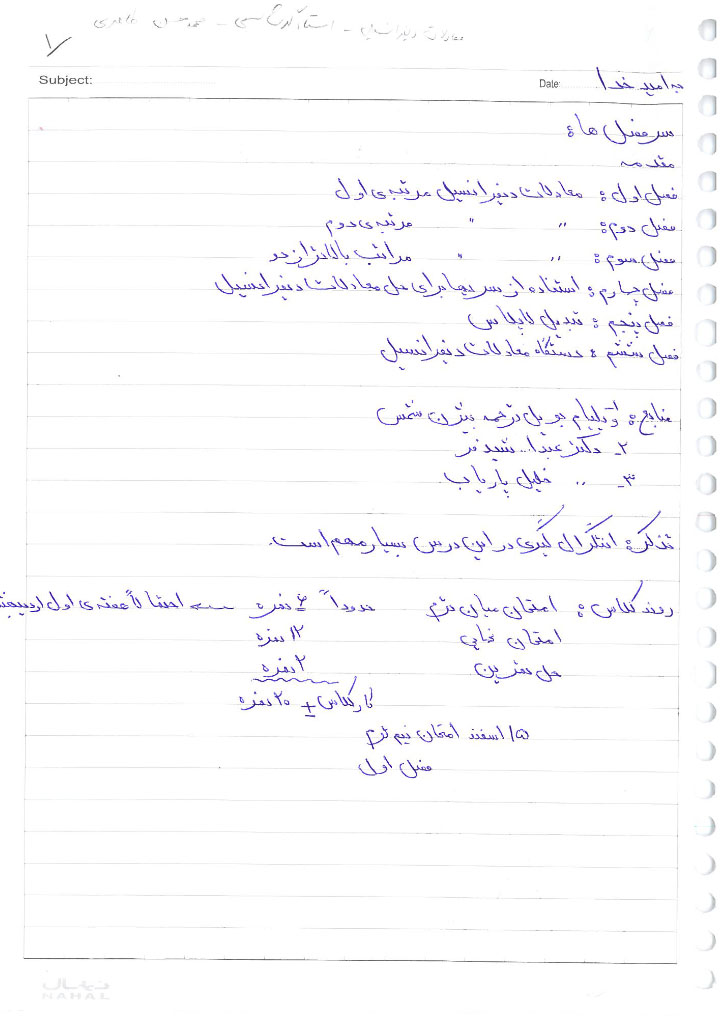 معادلات دیفرانسیل - استاد
۱
Subject:
Date:
به امید خدا
سرفصل ها:
مقدمه
فصل اول: معادلات دیفرانسیل مرتبه‌ی اول
فصل دوم: " " مرتبه‌ی دوم
فصل سوم: " " مراتب بالاتر از دو
فصل چهارم: استفاده از سریها برای حل معادلات دیفرانسیل
فصل پنجم: تبدیل لاپلاس
فصل ششم: دستگاه معادلات دیفرانسیل
منابع: ۱- ویلیام بویل ترجمه بیژن شمس
۲- دکتر عبدا... شیدفر
۳- " خلیل پاریاب
تذکر: انتگرال گیری در این درس بسیار مهم است.
روند کلاس: امتحان میان ترم حدوداً ۶ نمره → احتمالاً هفته‌ی اول اردیبهشت
امتحان نهایی ۱۲ نمره
حل تمرین ۲ نمره
کار کلاس ± ۲۰ نمره
۱۵ اسفند امتحان نیم ترم
فصل اول
نهال
NAHAL